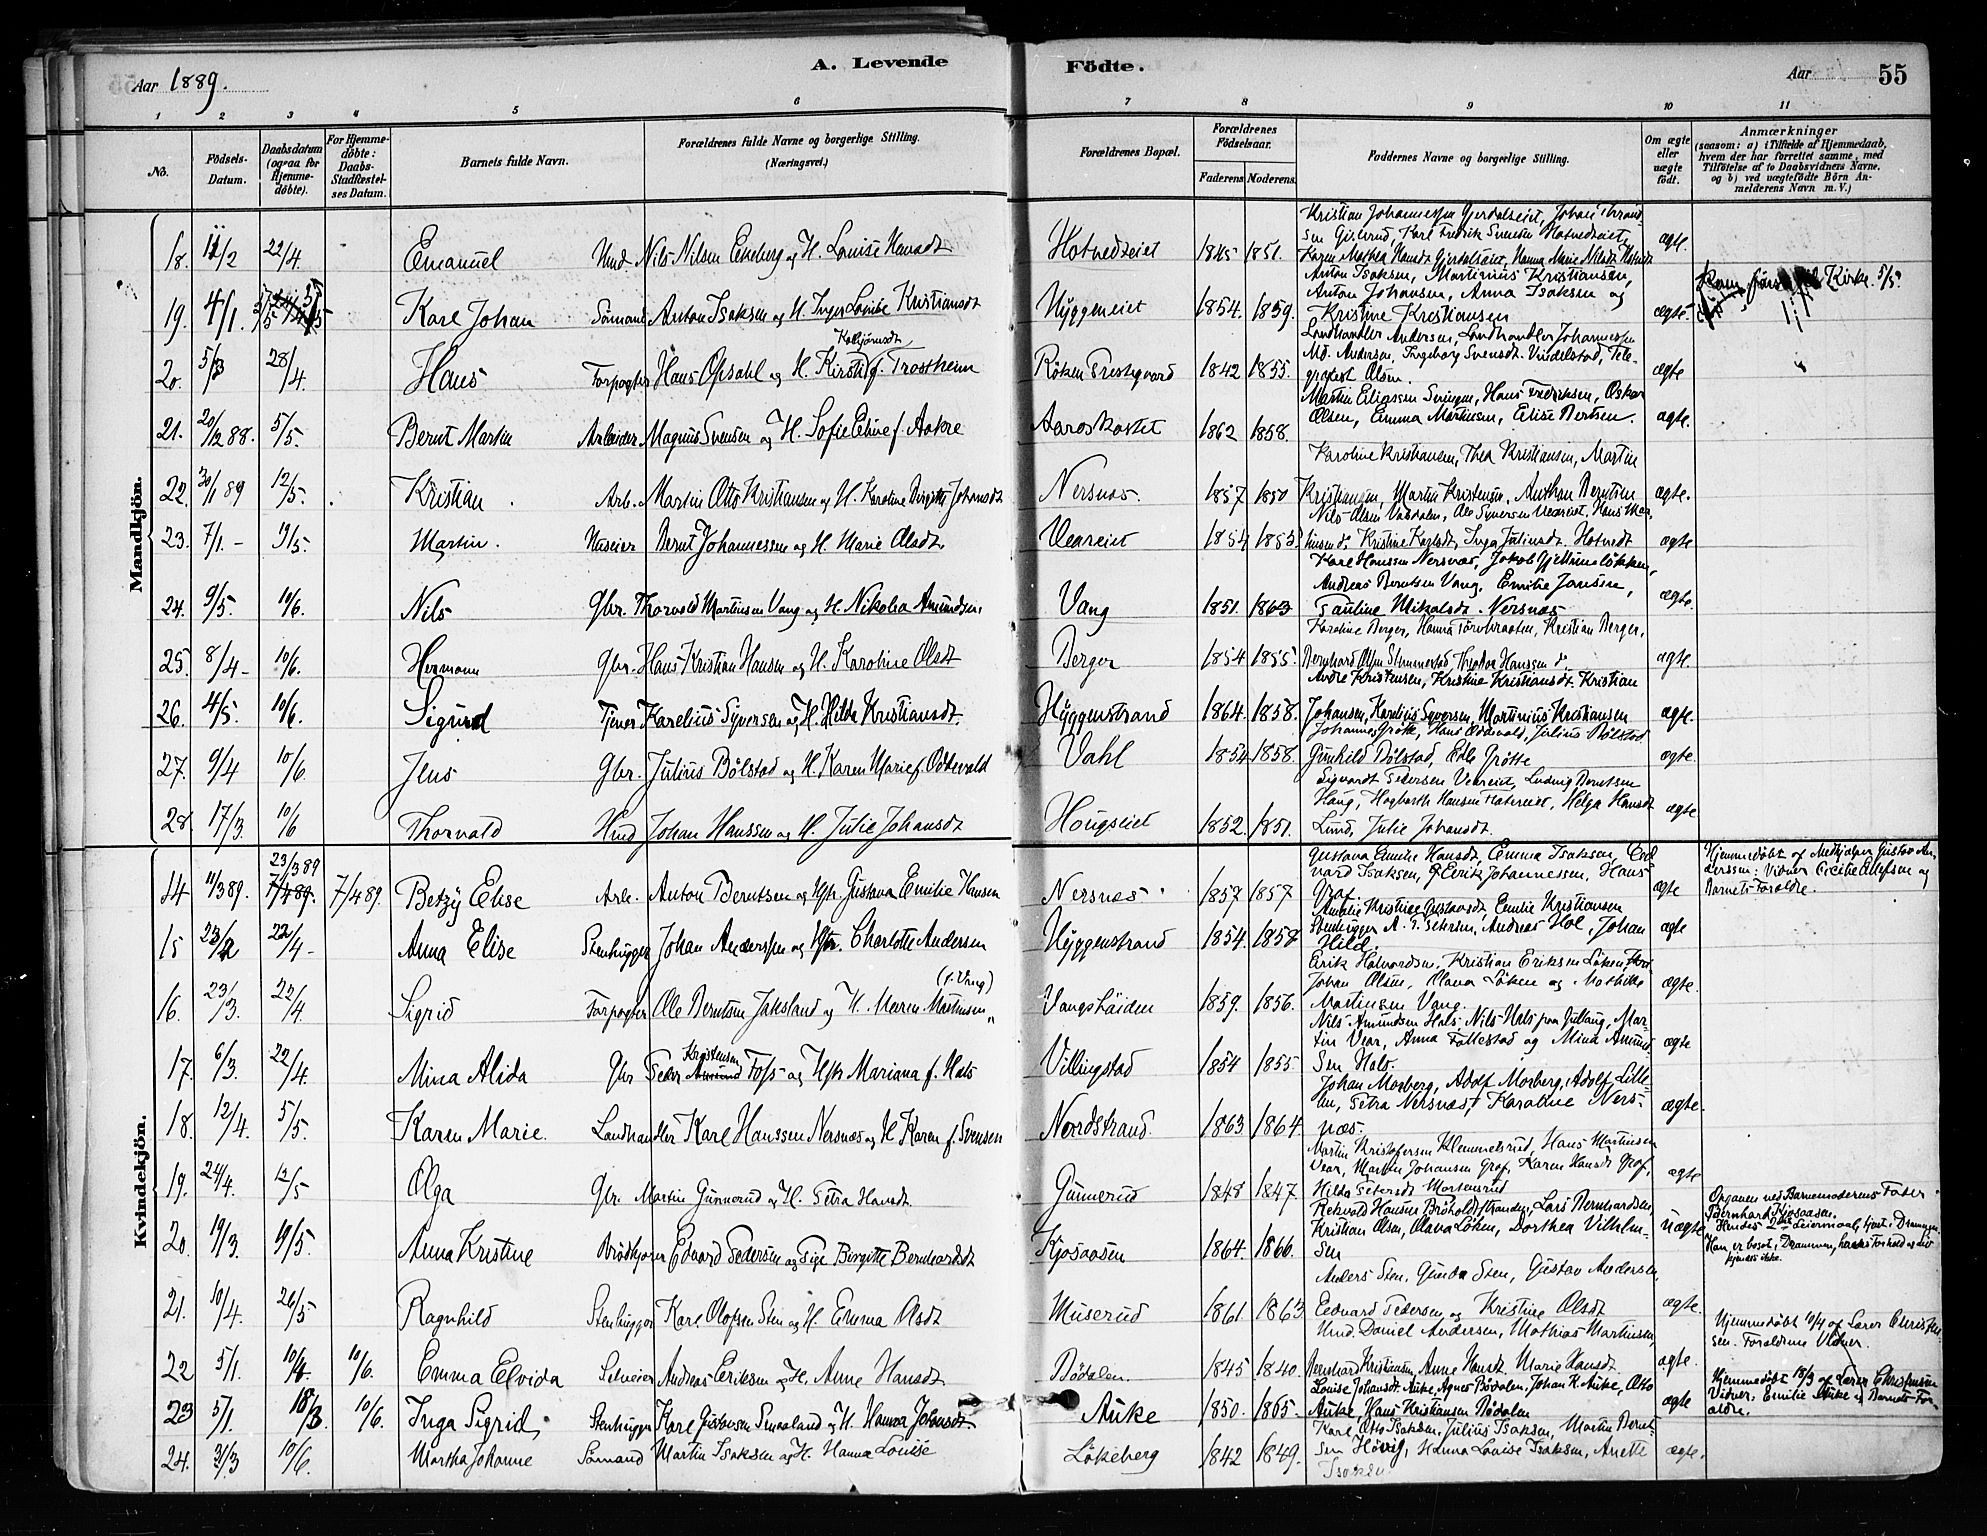 Aar 1889.
A. Levende
Födte.
Aar
55
1 2 3 4 5 6 7 8 9 10 11
No.
Födsels-Datum.
Daabsdatum (ogsaa for Hjemme-döbte).
For Hjemme-döbte: Daabs-Stadfæstel-ses Datum.
Barnets fulde Navn.
Forældrenes fulde Navne og borgerlige Stilling. (Næringsvei.)
Forældrenes Bopæl.
Forældrenes Födselsaar.
Faderens. Moderens.
Faddernes Navne og borgerlige Stilling.
Om ægte eller uægte födt.
Anmærkninger
(saasom: a) i Tilfælde af Hjemmedaab, hvem der har forrettet samme, med Tilföielse af to Daabsvidners Navne, og b) ved uægtefödte Börn An-melderens Navn m. V.)
Mandkjön.
18. 11/2 22/4. Emanuel Hmd Nils Nilsen Ekeberg og H. Louise Hansdt Hotvedteiet 1845 1851. ægte.
19. 4/1. Karl Johan Sömand Anton Isaksen og H. Inger Louise Kristiansdt Hyggeneiet 1854. 1859. Anton Isaksen, Martinius Kristiansen, Anton Johansen, Anna Isaksen og Kristine Kristiansen ægte. Kirke. 5/5
20. 5/3 28/4. Hans Forpagter Hans Opsahl og H. Kirsti f. Trostheim Röken Prestegaard 1842 1855. Landhandler Andersen, Landhandler Johannessen Md. Andersen, Ingeborg Svensdt. Vindelstad, Tele-grafist Olsen. ægte
21. 20/12 88. 5/5. Bernt Martin Arbeider Magnus Svensen og H. Sofie Eline f. Aakre Aaroskortet 1862 1858. Martin Eliassen Svingen, Hans Fredriksen, Oskar Olsen, Emma Martinsen, Elise Berntsen. ægte.
22. 30/1 89 12/5. Kristian Arb. Martin Otto Kristiansen og H. Karoline Birgitte Johansdt Nersnæs. 1857 1850 Karoline Kristiansen, Thea Kristiansen, Martin Kristiansen, Martin Kristensen, Anthon Berntsen ægte.
23. 7/1. - 19/5. Martin. Huseier Bernt Johannessen og H. Marie Olsdt. Veareiet 1854 1853 Nils Olsen Vasdalen, Ole Syversen Veareiet, Hans Mar-tinsen do, Kristine Karlsdt, Inga Juliusdt. Hotvedt ægte
24. 9/5. 10/6. Nils Gbr. Thorvald Martinsen Vang og H. Nikolia Amundsen Vang 1851. 1863 Karl Hanssen Nersnæs, Jakob Gjellumslökken, Andreas Berntsen Vang, Emilie Jansen, Pauline Mikalsdt. Nersnæs ægte.
25. 8/4 - 10/6. Hermann Gbr. Hans Kristian Hansen og H. Karoline Olsdt Berger 1854 1855. Karoline Berger, Hanna Törvbraaten, Kristian Berger, Bernhard Olsen Stemmerstad, Thea Hanssen do. ægte.
26. 4/5. 10/6. Sigurd Tjener Karelius Syversen og H. Hilda Kristiansdt. Hyggenstrand 1864. 1858. Andre Kristensen, Kristine Kristiansdt. Kristian Johansen, Karelius Syversen, Martinius Kristiansen ægte.
27. 9/4 10/6. Jens Gbr. Julius Bölstad og H. Karen Marie f. Oddevald Vahl 1854 1858. Johannes Grötte, Hans Oddevald, Julius Bölstad Gunhild Bölstad, Edle Grötte ægte
28 17/3. 10/6 Thorvald Hmd Johan Hanssen og H. Julie Johansdt Hougseiet 1852. 1851. Sigvardt Pedersen Veareiet, Ludvig Berntsen Haug, Hagbarth Hansen Flatereiet, Helga Hansdt Lund, Julie Johansdt. ægte
Kvindekjön.
14 11/3 89. 23/3 89 7/4 89. 7/4 89. Betzy Elise Arb. Anton Berntsen og Hstr. Gustava Emilie Hansen Nersnæs 1857 1857 Gustava Emilie Hansdt, Emma Isaksen, Ed-vard Isaksen, Eirik Johannessen, Hans Graf ægte Hjemmedöbt af Medhjælper Gustav An-derssen: Vidner Cecilie Ellefsen og Barnets Forældre.
15 23/2 22/4 - Anna Elise Stenhugger Johan Anderssen og Hstr. Charlotte Andersen Hyggenstrand 1854. 1857 Amalie Kristine Gustavsdt, Emilie Kristiansen Stenhugger A. P. Petersen, Andreas Hol, Johan Hild. ægte
16. 23/3. 22/4. Sigrid Forpagter Ole Berntsen Jaksland og H. Maren Martinsen (f. Vang) Vangshäiden 1859. 1856. Eirik Halvordsen, Kristian Eriksen Löken Johan Olsen, Olava Löken og Mathilde Martinsen Vang. ægte.
17. 6/3. 22/4. Mina Alida Gbr Peder Kristensen Foss og Hstr Mariana f. Hals Villingstad 1854 1855. Nils Amundsen Hals, Nils Hals paa Gullaug, Mar-tin Vear, Anna Follestad og Mina Amund-sen Hals. ægte
18. 12/4. 5/5. Karen Marie. Landhandler Karl Hanssen Nersnæs og H Karen f. Svensen Nordstrand. 1863 1864. Johan Morberg, Adolf Morberg, Adolf Lille-by, Petra Nersnæs, Karoline Ners-næs. ægte.
19. 24/4. 12/5 Olga Gbr. Martin Gunnerud og H. Petra Hansdt. Gunnerud 1848 1847 Martin Kristofersen Klemmetsrud, Hans Martinsen Vear, Martin Johansen Graf, Karen Hansdt Graf, Hilda Petersdt Mortensrud ægte
20. 19/3. 9/5. Anna Kristine Brödkjörer Edvard Pedersen og Pige Birgitte Bernhardsdt Kjosaasen 1864. 1866. Rekvald Hansen Bröholdtstranden, Lars Bernhardsen, Kristian Olsen, Olava Löken, Dorthea Vilhelm-sen uægte Opgaven ved Barnemoderens Fader Bernhard Kjosaasen. Hendes 2det Leiermaal, hjemst. Drammen. Han er bosat i Drammen, hans Forhold er kjendes ikke.
21. 10/4. 26/5 Ragnhild Stenhugger Karl Olofsen Sten og H. Emma Olsdt Muserud 1861 1863 Anders Sten, Gunda Sten, Gustav Andersen, Eedvard Pedersen og Kristine Olsdt ægte.
22 5/1. 10/4. 10/6. Emma Elvida Selveier Andreas Eriksen og H. Anne Hansdt Bödalen. 1845 1840. Hmd. Daniel Andersen, Mathias Martinsen, Bernhard Kristiansen, Anne Hansdt. Marie Hansdt ægte. Hjemmedöbt 10/4 af Lærer Christen-sen. Forældrene Vidner.
23 5/1. 18/3 10/6. Inga Sigrid Stenhugger Karl Gustavsen Smaaland og H. Hanna Johansdt. Auke 1850. 1865. Louise Johansdt. Auke, Agnes Bödalen, Johan K. Auke, Otto Auke, Hans Kristiansen Bödalen ægte Hjemmedöbt 18/3 af Lærer Christensen Vidner. Emilie Auke og Barnets For-ældre.
24. 31/3 10/6. Martha Johanne Sömand Martin Isaksen og H. Hanna Louise Lökeberg 1842 1849. Karl Otto Isaksen, Julius Isaksen, Martin Bernt-sen Hövig, Hanna Louise Isaksen, Anette Isaksen ægte.